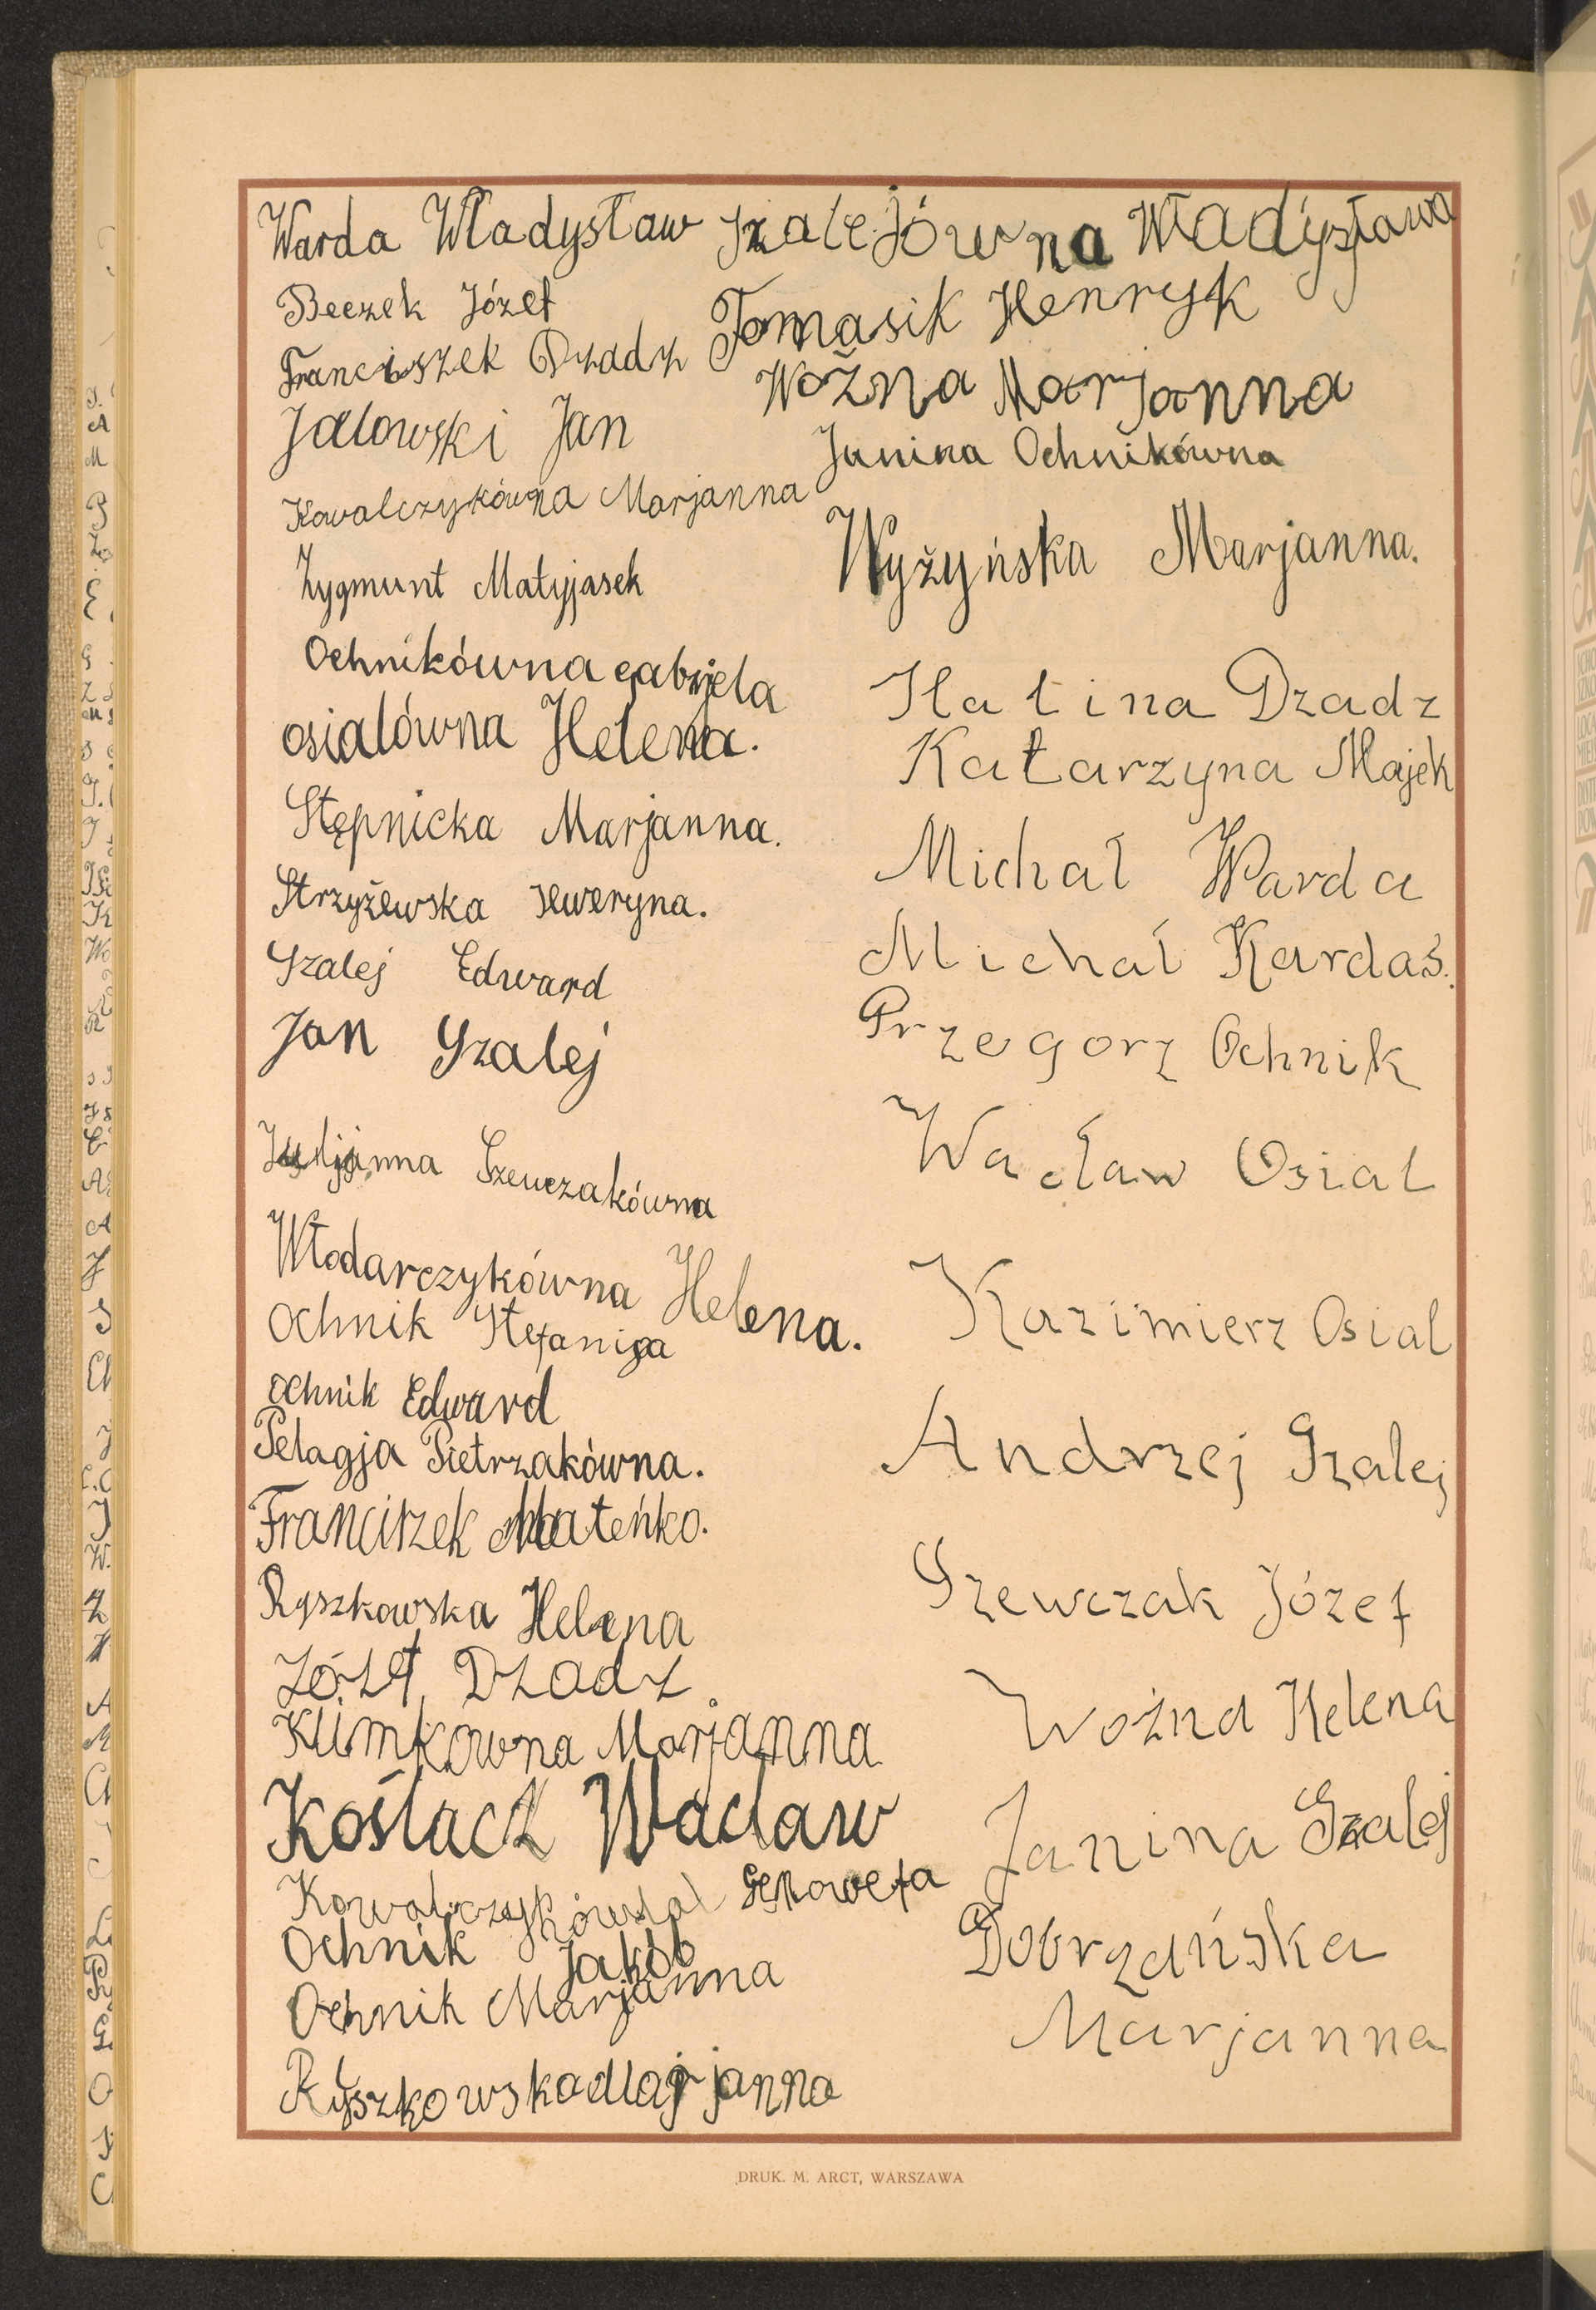 Warda Władysław
Beczek Józef
Franciszek Dzadz
Jalowski Jan
Kowalczykówna Marjanna
Zygmunt Matyjasek
Ochnikówna Gabryela
Osialówna Helena.
Stępnicka Marjanna.
Strzyżewska Seweryna.
Szalej Edward
Jan Szalej
Juljanna Szewczakówna
Włodarczykówna Helena.
Ochnik Stefanija
Ochnik Edward
Pelagja Pietrzakówna.
Franciszek Mateńko.
Ryszkowska Helena
Józef Dzadz
Klimkowna Marjanna
Koślacz Wacław
Kowalczykówna Genowefa
Ochnik Jakób
Ochnik Marjanna
Ryszkowska Marjanna
Szalejówna Władysława
Tomasik Henryk
Woźna Marjanna
Janina Ochnikówna
Wyżyńska Marjanna.
Halina Dzadz
Katarzyna Majek
Michał Warda
Michał Kardaś.
Przegorz Ochnik
Wacław Osial
Kazimierz Osial
Andrzej Szalej
Szewczak Józef
Woźna Helena
Janina Szalej
Dobrzańska
Marjanna
DRUK. M. ARCT, WARSZAWA